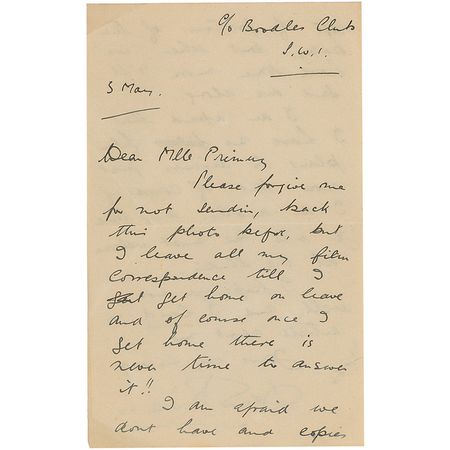 c/o Boodles Club
S.W.1.
5 May.
Dear Mlle Primuy
Please forgive me
for not sendin, back
this photo before, but
I leave all my film
correspondence till I
get get home on leave
and of course once I
get home there is
never time to answer
it!!
I am afraid we
dont have and copies